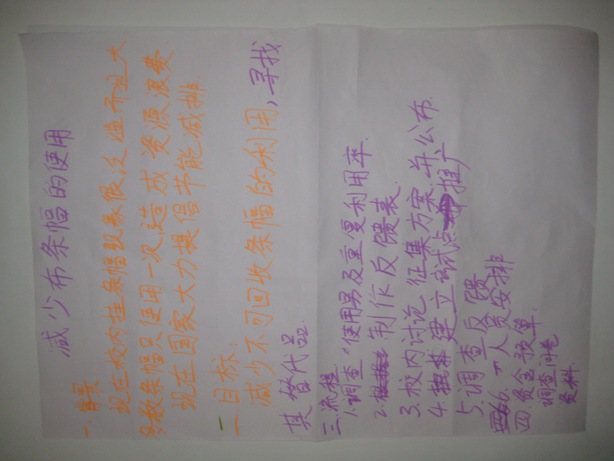 减少布条幅的使用
一.背景
现在校内挂条幅现象很泛滥而且大
多数条幅只使用一次,造成资源浪费
现在国家大力提倡节能减排.
二目标:
减少不可回收条幅的利用,寻找
其替代品.
三.流程
1.调查"使用另及重复利用率.
2.制作反馈表.
3.校内讨论征集方案并公布.
4.建立试点推广
5.调查反馈
6.人员安排
四资金预算.
调查问卷
资料.